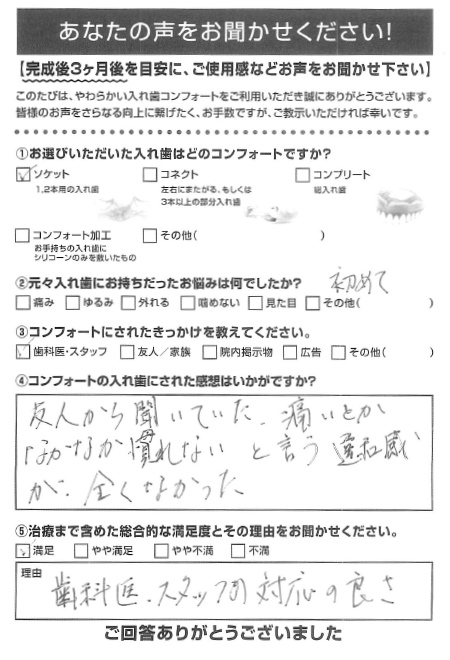 あなたの声をお聞かせください!
【完成後3ヶ月後を目安に、ご使用感などお声をお聞かせ下さい】
このたびは、やわらかい入れ歯コンフォートをご利用いただき誠にありがとうございます。
皆様のお声をさらなる向上に繋げたく、お手数ですが、ご教示いただければ幸いです。
①お選びいただいた入れ歯はどのコンフォートですか?
☑ソケット □コネクト □コンプリート
1,2本用の入れ歯 左右にまたがる、もしくは 総入れ歯
3本以上の部分入れ歯
□コンフォート加工 □その他( )
お手持ちの入れ歯に
シリコーンのみを敷いたもの
②元々入れ歯にお持ちだったお悩みは何でしたか? 初めて
□痛み □ゆるみ □外れる □噛めない □見た目 □その他( )
③コンフォートにされたきっかけを教えてください。
☑歯科医・スタッフ □友人/家族 □院内掲示物 □広告 □その他( )
④コンフォートの入れ歯にされた感想はいかがですか?
友人から聞いていた、痛いとか
なかなか慣れないと言う違和感
が、全くなかった
⑤治療まで含めた総合的な満足度とその理由をお聞かせください。
☑満足 □やや満足 □やや不満 □不満
理由
歯科医、スタッフの対応の良さ
ご回答ありがとうございました